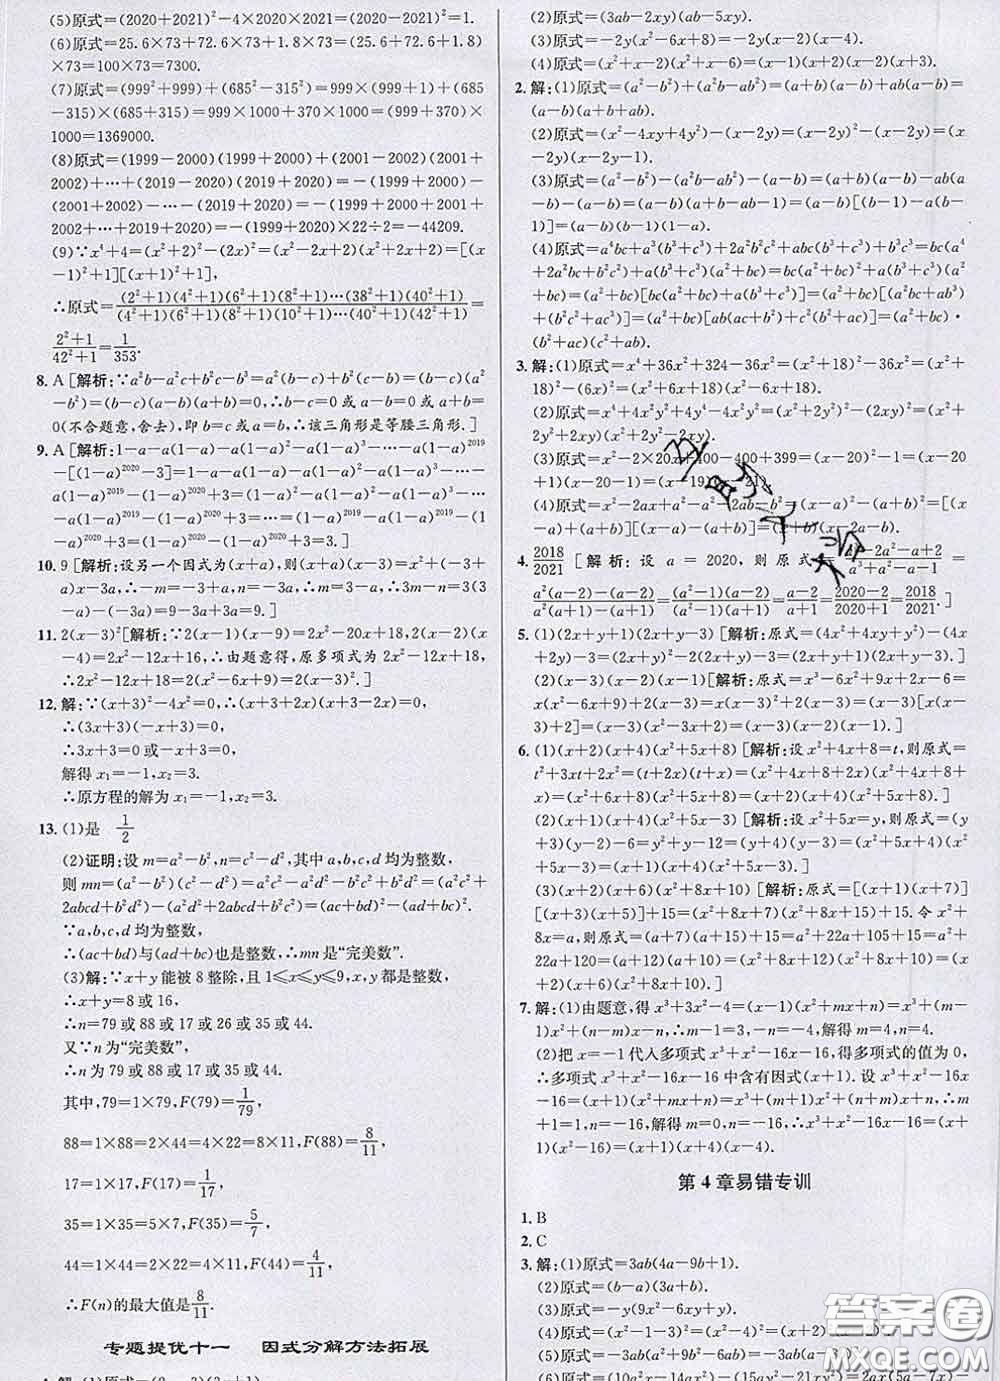 (5)原式=(2020+2021)²-4×2020×2021=(2020-2021)²=1.
(6)原式=25.6×73+72.6×73+1.8×73=(25.6+72.6+1.8)
×73=100×73=7300.
(7)原式=(999²+999)+(685²-315²)=999×(999+1)+(685-
315)×(685+315)=999×1000+370×1000=(999+370)×
1000=1369000.
(8)原式=(1999-2000)(1999+2000)+(2001-2002)(2001+
2002)+…+(2019-2020)(2019+2020)=-(1999+2000)-
(2001+2002)-…-(2019+2020)=-(1999+2000+2001+
2002+…+2019+2020)=-(1999+2020)×22÷2=-44209.
(9)∵x⁴+4=(x²+2)²-(2x)²=(x²-2x+2)(x²+2x+2)=[(x
-1)²+1][(x+1)²+1],
∴原式=(2²+1)(4²+1)(6²+1)(8²+1)…(38²+1)(40²+1)/(4²+1)(6²+1)(8²+1)(10²+1)…(40²+1)(42²+1)=
2²+1/42²+1=1/353.
8. A [解析:∵a²b-a²c+b²c-b³=a²(b-c)+b²(c-b)=(b-c)(a²
-b²)=(b-c)(a-b)(a+b)=0,∴b-c=0或a-b=0或a+b=
0(不合题意,舍去),即b=c或a=b,∴该三角形是等腰三角形.]
9. A [解析:1-a-a(1-a)-a(1-a)²-a(1-a)³-…-a(1-a)²⁰¹⁹
-[(1-a)²⁰²⁰-3]=(1-a)-a(1-a)-a(1-a)²-a(1-a)³-…-
a(1-a)²⁰¹⁹-(1-a)²⁰²⁰+3=(1-a)²-a(1-a)²-a(1-a)³-…-
a(1-a)²⁰¹⁹-(1-a)²⁰²⁰+3=…=(1-a)²⁰¹⁹-a(1-a)²⁰¹⁹-(1-
a)²⁰²⁰+3=(1-a)²⁰²⁰-(1-a)²⁰²⁰+3=3.]
10. 9 [解析:设另一个因式为(x+a),则(x+a)(x-3)=x²+(-3+
a)x-3a,∴-m=-3+a,n=-3a,∴m=3-a,∴3m-n=3(3
-a)-(-3a)=9-3a+3a=9.]
11. 2(x-3)²[解析:∵2(x-1)(x-9)=2x²-20x+18,2(x-2)(x
-4)=2x²-12x+16,∴由题意得,原多项式为2x²-12x+18,
∴2x²-12x+18=2(x²-6x+9)=2(x-3)².]
12. 解:∵(x+3)²-4x²=0,∴(x+3+2x)(x+3-2x)=0,
∴(3x+3)(-x+3)=0,
∴3x+3=0或-x+3=0,
解得x₁=-1,x₂=3.
∴原方程的解为x₁=-1,x₂=3.
13. (1)是 1/2
(2)证明:设m=a²-b²,n=c²-d²,其中a,b,c,d均为整数,
则mn=(a²-b²)(c²-d²)=a²c²-a²d²-b²c²+b²d²=(a²c²+
2abcd+b²d²)-(a²d²+2abcd+b²c²)=(ac+bd)²-(ad+bc)².
∵a,b,c,d均为整数,
∴(ac+bd)与(ad+bc)也是整数,∴mn是“完美数”.
(3)解:∵x+y能被8整除,且1≤x≤y≤9,x,y都是整数,
∴x+y=8或16,
∴n=79或88或17或26或35或44.
又∵n为“完美数”,
∴n=79或88或17或35或44.
其中,79=1×79,F(79)=1/79,
88=1×88=2×44=4×22=8×11,F(88)=8/11,
17=1×17,F(17)=1/17,
35=1×35=5×7,F(35)=5/7,
44=1×44=2×22=4×11,F(44)=4/11,
∴F(n)的最大值是8/11.
专题提优十一 因式分解方法拓展
(2)原式=(3ab-2xy)(x²-5).
(3)原式=-2y(x²-6x+8)=-2y(x-2)(x-4).
(4)原式=(x²+x-2)(x²+x-6)=(x-1)(x+2)(x-2)(x+3).
2. 解:(1)原式=(a²-b²)+(a²b-ab²)=(a+b)(a-b)+ab(a-b)=
(a-b)(a+b+ab).
(2)原式=(x²-4xy+4y²)-(x-2y)=(x-2y)²-(x-2y)=
(x-2y)(x-2y-1).
(3)原式=(a²-b²)-(a²b-ab²)-(a-b)=(a+b)(a-b)-ab(a
-b)-(a-b)=(a-b)(a+b-ab-1)=(a-b)[(b-1)-a(b-
1)]=(a-b)(b-1)(1-a).
(4)原式=a⁴bc+a³(b³+c³)+2a²b²c²+abc(b³+c³)+b³c³=bc(a⁴
+2a²bc+b²c²)+a(b³+c³)(a²+bc)=bc(a²+bc)²+a(b³+c³)(a²
+bc)=(a²+bc)[bc(a²+bc)+a(b³+c³)]=(a²+bc)[(a²bc+ab³)
+(b²c²+ac³)]=(a²+bc)[ab(ac+b²)+c²(ac+b²)]=(a²+bc)·
(b²+ac)(c²+ab).
3. 解:(1)原式=x⁴+36x²+324-36x²=(x²+18)²-36x²=(x²+
18)²-(6x)²=(x²+6x+18)(x²-6x+18).
(2)原式=x⁴+4x²y²+4y⁴-4x²y²=(x²+2y²)²-(2xy)²=(x²+
2y²+2xy)(x²+2y²-2xy).
(3)原式=x²-2×20x+400-400+399=(x-20)²-1=(x-20
+1)(x-20-1)=(x-19)(x-21).
(4)原式=x²-2ax+a²-a²-2ab-b²=(x-a)²-(a+b)²=[(x
-a)+(a+b)][(x-a)-(a+b)]=(x+b)(x-2a-b).
4. 2018/2021 [解析:设a=2020,则原式=a³-2a²-a+2/a³+a²-a-1=
a²(a-2)-(a-2)/a²(a+1)-(a+1)=(a²-1)(a-2)/(a²-1)(a+1)=a-2/a+1=2020-2/2020+1=2018/2021.]
5. (1)(2x+y+1)(2x+y-3) [解析:原式=(4x²+4xy+y²)-(4x
+2y)-3=(2x+y)²-2(2x+y)-3=(2x+y+1)(2x+y-3).]
(2)(x-3)(x-2)(x-1) [解析:原式=x³-6x²+9x+2x-6=
x(x²-6x+9)+2(x-3)=x(x-3)²+2(x-3)=(x-3)[x(x-
3)+2]=(x-3)(x²-3x+2)=(x-3)(x-2)(x-1).]
6. (1)(x+2)(x+4)(x²+5x+8) [解析:设x²+4x+8=t,则原式=
t²+3xt+2x²=(t+2x)(t+x)=(x²+4x+8+2x)(x²+4x+8+
x)=(x²+6x+8)(x²+5x+8)=(x+2)(x+4)(x²+5x+8).]
(2)(x+1)(x+4)(x²+5x-3) [解析:设x²+5x=y,则原式=(y
+3)(y-2)-6=y²+y-12=(y+4)(y-3)=(x²+5x+4)(x²+
5x-3)=(x+1)(x+4)(x²+5x-3).]
(3)(x+2)(x+6)(x²+8x+10) [解析:原式=[(x+1)(x+7)]
[(x+3)(x+5)]+15=(x²+8x+7)(x²+8x+15)+15.令x²+
8x=a,则原式=(a+7)(a+15)+15=a²+22a+105+15=a²+
22a+120=(a+12)(a+10)=(x²+8x+12)(x²+8x+10)=
(x+2)(x+6)(x²+8x+10).]
7. 解:(1)由题意,得x³+3x²-4=(x-1)(x²+mx+n)=x³+(m-
1)x²+(n-m)x-n,∴m-1=3,-n=-4,解得m=4,n=4.
(2)把x=-1代入多项式x³+x²-16x-16,得多项式的值为0,
∴多项式x³+x²-16x-16中含有因式(x+1).设x³+x²-16x-
16=(x+1)(x²+mx+n)=x³+(m+1)x²+(n+m)x+n,∴m
+1=1,n=-16,解得m=0,n=-16,∴x³+x²-16x-16=(x+
1)(x²-16)=(x+1)(x+4)(x-4).
第4章易错专训
1. B
2. C
3. 解:(1)原式=3ab(4a-9b+1).
(2)原式=(a-b)(3a+b).
(3)原式=-y(9x²-6xy+y²)
(5)原式=3ab(a²+9b²-6ab)=
答案圈
MXQE.COM